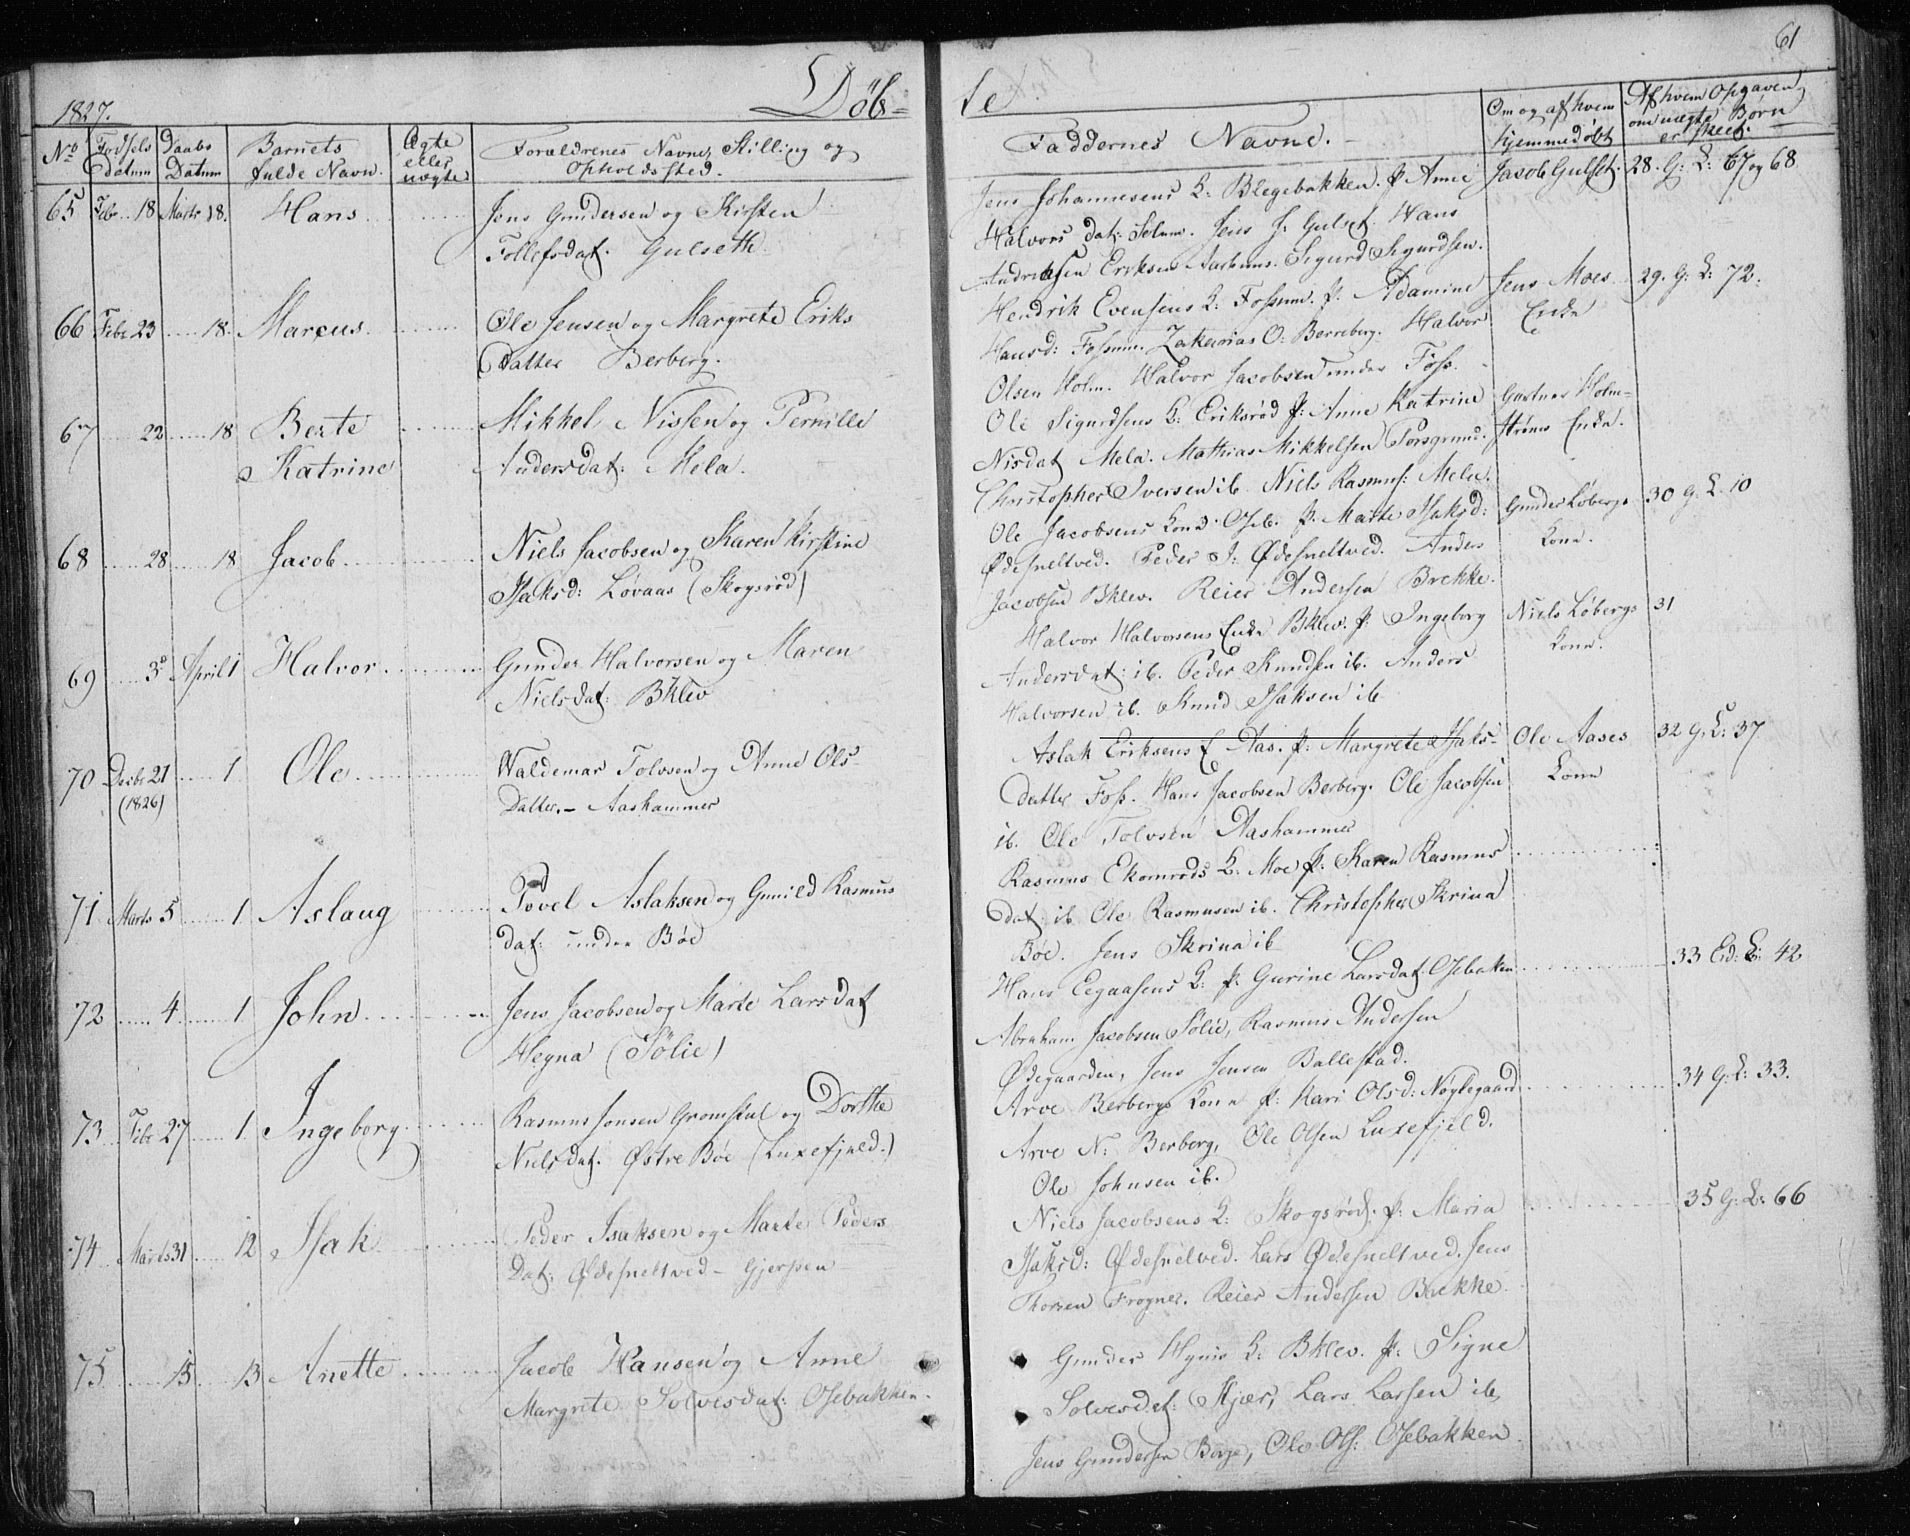 61
1827. Döb= te
No Fødsels datum Daabs Datum Barnets fulde Navn. Ægte eller uægte Forældrenes Navne, Stilling og Opholdssted. Faddernes Navne. Om og af hvem hjemmedøbt Af hvem Opgaven om uægte Børn er skeet.
65 Febr 18 Marts 18. Hans Jens Gundersen og Kirsten
Tollefsdat. Gulseth.
Jens Johannesens K: Blegebakken. p. Anne Jacob Gulset. 28. G: L: 67 og 68
Halvors dat: Solum. Jens J: Gulset. Hans
Andreasen Eriksen Aarhuus. Sigurd Sigurdsen.
66 Febr 23 18. Marcus Ole Jensen og Margrete Eriks
Datter Berberg.
Hendrik Evensens K: Fossum. p. Adamine Jens Moes 29. G: L: 72.
Hansd: Fossum. Zakarias O: Berreberg. Halvor Enke
Olsen Holm. Halvor Jacobsen under Foss.
67 22 18 Berte
Katrine
Mikkel Nissen og Pernille
Andersdat: Mela.
Ole Sigurdsens K: Eriksrød p: Anne Katrine Gartner Holm=
Nisdat Mela. Mathias Mikkelsen Porsgrund. strøms Enke.
Christopher Iversen ib. Niels Rasmus: Mela.
68 28 18 Jacob Niels Jacobsen og Karen Kirstine
Isaksd: Løvaas (Skogsrød)
Ole Jacobsens Kone Oseb. p. Marte Isaksd: Gunder Løbergs 30 G. L. 10
Ødesneltved. Peder I: Ødesneltved. Anders Kone.
Jacobsen Bklev. Reier Andersen Brekke.
69 3 April 1 Halvor Gunder Halvorsen og Maren
Nielsdat: Bklev
Halvor Halvorsens Enke Bklev. p. Ingeborg Niels Løbergs 31
Andersdat: ib. Peder Knudsen ib. Anders Kone.
Halvorsen ib. Knud Isaksen ib.
70 Decbr 21 1 Ole
(1826)
Waldemar Tolvsen og Anne Ols=
Datter. – Aashammer
Aslak Eriksens E Aas. p: Margrete Isaks= Ole Aases 32 G. L: 37
datter Foss. Hans Jacobsen Berberg. Ole Jacobsen Kone
ib. Ole Tolvsen Aashammer
71 Marts 5 1 Aslaug Povel Aslaksen og Gunild Rasmus
dat: under Böe
Rasmus Ekornrøds K: Moe p: Karen Rasmus
dat: ib Ole Rasmusen ib. Christopher Skrina
Bøe. Jens Skrina ib
72 4 1 John Jens Jacobsen og Marte Larsdat
Hegna (Sølie)
Hans Eegaasens K: p: Gurine Larsdat. Osebaken 33 Eid: L: 42
Abraham Jacobsen Sølie, Rasmus Andersen
Ødegaarden, Jens Jensen Ballestad.
73 Febr 27 1. Ingeborg Rasmus Jonsen Gromstul og Dorthe
Nielsdat. Østre Böe (Luxefjeld.)
Arve Berbergs Kone p: Kari Olsd: Nøglegaard 34 G: L: 33.
Arve N: Berberg, Ole Olsen Luxefjeld.
Ole Johnsen ib.
74 Marts 31 12 Isak Peder Isaksen og Marte Peders
Dat: Ødesneltved – Gjerpen
Niels Jacobsens K: Skogsrød. p: Maria 35 G: L: 66
Isaksd: Ødesnelved. Lars Ødesneltved. Jens
Thorsen Frogner. Reier Andersen Bække.
75 15 13 Anette Jacob Hansen og Anne
Margrete Solvesdat: Osebakken.
Gunder Hynis K: Bklev. p: Signe
Solvesdat: Kjær, Lars Larsen ib,
Jens Gundersen Borge, Ole Ols: Osebakken